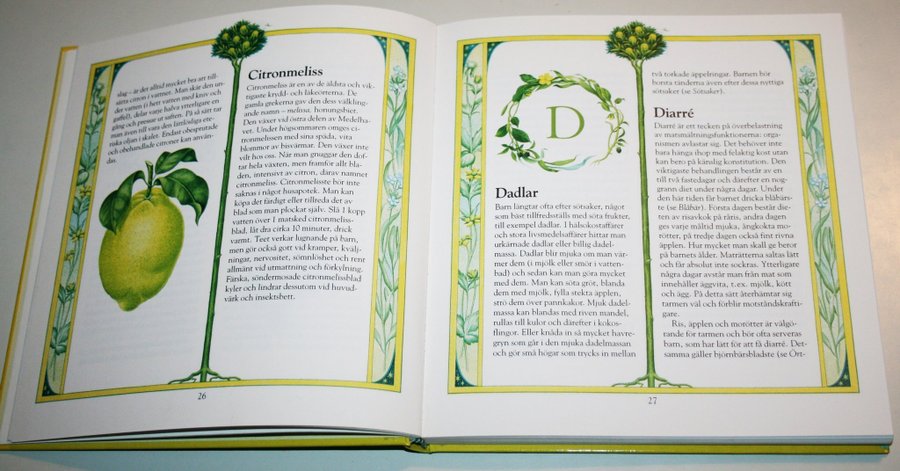 slag – är det alltid mycket bra att till-
sätta citron i vattnet. Man skär den un-
der vatten (i hett vatten med kniv och
gaffel), delar varje halva ytterligare en
gång och pressar ut saften. På så sätt tar
man även till vara den lättlösliga ete-
riska oljan i skalet. Endast obesprutade
och obehandlade citroner kan använ-
das.
Citronmeliss
Citronmeliss är en av de äldsta och vik-
tigaste krydd- och läkeörterna. De
gamla grekerna gav den dess välkling-
ande namn – melissa, honungsbiet.
Den växer vid östra delen av Medelha-
vet. Under högsommaren omges citron-
melissen med sina späda, vita
blommor av bisvärmar. Den växer inte
vilt hos oss. När man gnuggar den dof-
tar hela växten, men framför allt bla-
den, intensivt av citron, därav namnet
citronmeliss. Citronmelisste bör inte
saknas i något husapotek. Man kan
köpa det färdigt eller tillreda det av
blad som man plockat själv. Slå 1 kopp
vatten över 1 matsked citronmeliss-
blad, låt dra cirka 10 minuter, drick
varmt. Teet verkar lugnande på barn,
men gör också gott vid kramper, kvälj-
ningar, nervositet, sömnlöshet och rent
allmänt vid utmattning och förkylning.
Färska, söndermosade citronmelissblad
kyler och lindrar dessutom vid huvud-
värk och insektsbett.
26
D
Dadlar
Barn längtar ofta efter sötsaker, något
som bäst tillfredsställs med söta frukter,
till exempel dadlar. I hälsokostaffärer
och stora livsmedelsaffärer hittar man
urkärnade dadlar eller billig dadel-
massa. Dadlar blir mjuka om man vär-
mer dem (i mjölk eller smör i vatten-
bad) och sedan kan man göra mycket
med dem. Man kan söta gröt, blanda
dem med mjölk, fylla stekta äpplen,
strö dem över pannkakor. Mjuk dadel-
massa kan blandas med riven mandel,
rullas till kulor och därefter i kokos-
flingor. Eller knåda in så mycket havre-
gryn som går i den mjuka dadelmassan
och gör små högar som trycks in mellan
två torkade äppelringar. Barnen bör
borsta tänderna även efter dessa nyttiga
sötsaker (se Sötsaker).
Diarré
Diarré är ett tecken på överbelastning
av matsmältningsfunktionerna: orga-
nismen avlastar sig. Det behöver inte
bara hänga ihop med felaktig kost utan
kan bero på känslig konstitution. Den
viktigaste behandlingen består av en
till två fastedagar och därefter en nog-
grann diet under några dagar. Under
den här tiden får barnet dricka blåbärs-
te (se Blåbär). Första dagen består die-
ten av risavkok på råris, andra dagen
ges varje måltid mjuka, ångkokta mo-
rötter, på tredje dagen också fint rivna
äpplen. Hur mycket man skall ge beror
på barnets ålder. Maträtterna saltas lätt
och får absolut inte sockras. Ytterligare
några dagar avstår man från mat som
innehåller äggvita, t.ex. mjölk, kött
och ägg. På detta sätt återhämtar sig
tarmen väl och förblir motståndskrafti-
gare.
Ris, äpplen och morötter är välgö-
rande för tarmen och bör ofta serveras
barn, som har lätt för att få diarré. Det-
samma gäller björnbärsbladste (se Ört-
27